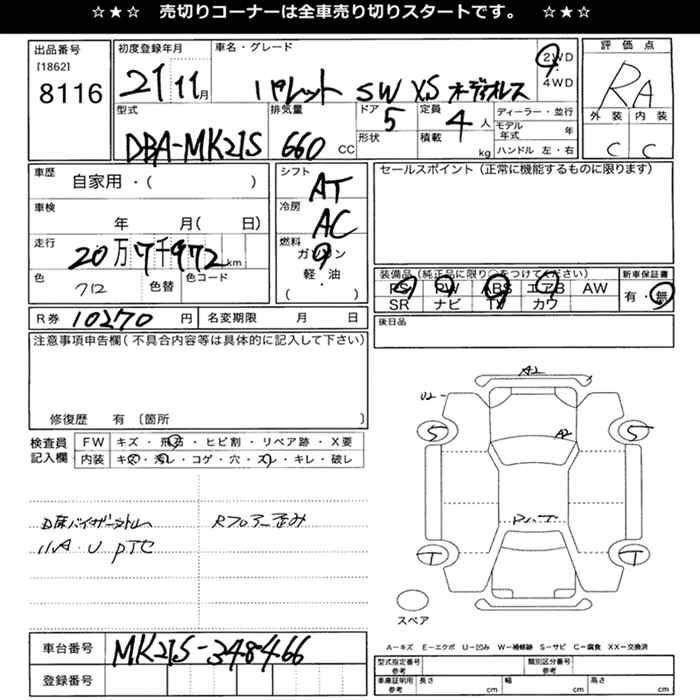 ☆★☆ 売切りコーナーは全車売り切りスタートです。 ☆★☆
出品番号
[1862]
8116
初度登録年月
21 11月
車名・グレード
パレット SW XS オーディオレス
2WD
・
4WD
評価点
RA
外装 内装
C C
型式
DBA-MK21S
排気量
660 CC
ドア 5
形状
定員 4 人
積載 kg
ディーラー・並行
モデル年式 年
ハンドル 左・右
車歴
自家用・( )
車検
年 月( 日)
走行
20万7千972km
色
クロ
色替
色コード
シフト
AT
冷房
AC
燃料
ガソリン
軽・油
( )
セールスポイント(正常に機能するものに限ります)
装備品(純正品に限り○をつけてください)
PS PW ABS エアB AW
SR ナビ TV カワ
新車保証書
有・無
R券 10270 円
名変期限 月 日
後日品
注意事項申告欄(不具合内容等は具体的に記入して下さい)
修復歴 有 〔箇所 〕
検査員
記入欄
FW キズ・飛石・ヒビ割・リペア跡・X要
内装 キズ・汚レ・コゲ・穴・スレ・キレ・破レ
A2
U2
A2
S S
T T
スペア
A-キズ E-エクボ U-凹み W-補修跡 S-サビ C-腐食 XX-交換済
車台番号 MK21S-348466
登録番号
型式指定番号
参考
類別区分番号
参考
車庫証明用
参考
長さ cm 幅 cm 高さ cm